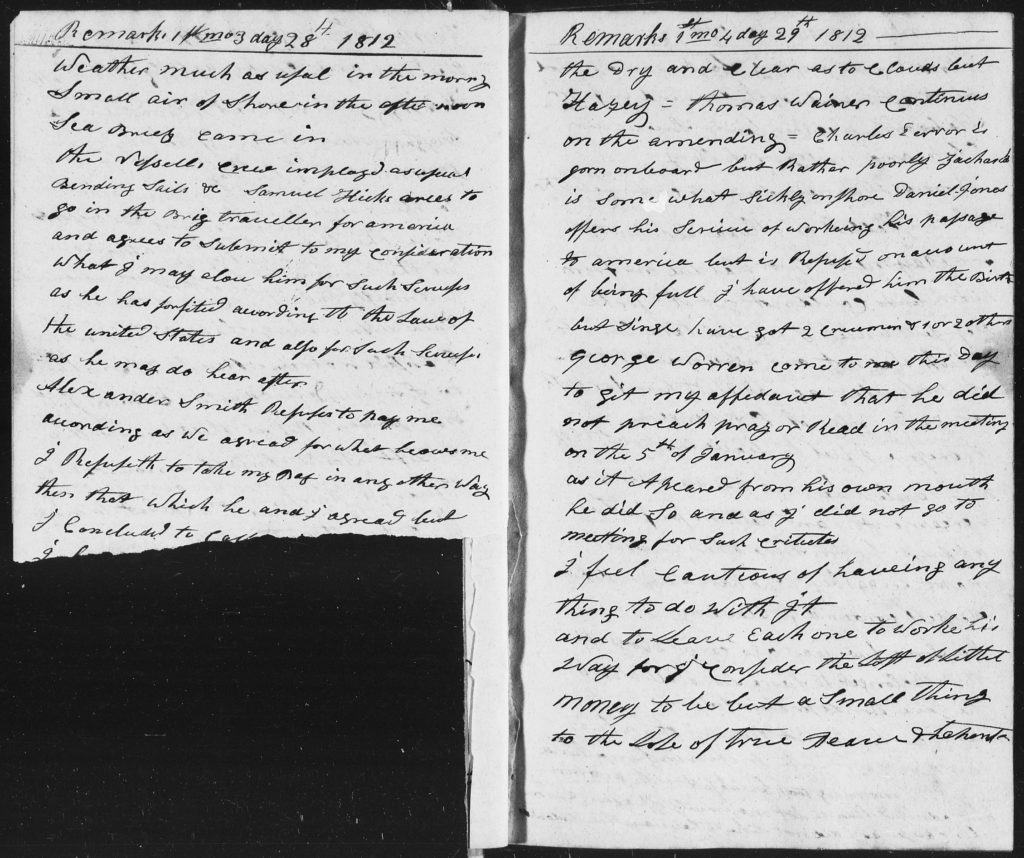 Remarks 1st mo 3 day 28th 1812
Weather much as usal in the morng
Small air of Shore in the after noon
Sea Breez came in
the Vessells Crew imployd as usual
Bending Sails & Samuel Hicks agrees to
go in the Brig traveller for america
and agrees to Submit to my Consideration
What I may alow him for Such Serveses
as he has forfited according to the Laws of
the united States and also for Such Serveses
as he may do hear after
Alexander Smith Refuses to pay me
according as we agread for what he owes me
I Refuseth to take my Pay in any other Way
then that Which he and I agread but
I Concluded to
Remarks 1st mo 4 day 29th 1812
the Dry and Clear as to Clouds but
Hazey = thomas Wainer Continues
on the amending = Charles
gorn onboard but Rather poorly Zachariah
is Some what Sickly onshore Daniel Jones
offers his Service of Workeing his passage
to america but is Refused on account
of being full I have offered him the Birth
but Sinse have got 2 Crewmen & 1 or 2 others
george Worren come to me this Day
to git my affedavit that he did
not preach pray or Read in the meeting
on the 5th of January
as it Apeared from his own mouth
he did So and as I did not go to
meeting for Such
I feel Cautious of haveing any
thing to do With It
and to Leave Each one to Worke his
Way for I Consider the Loss of Littel
money to be but a Small thing
to the Lose of true Peace